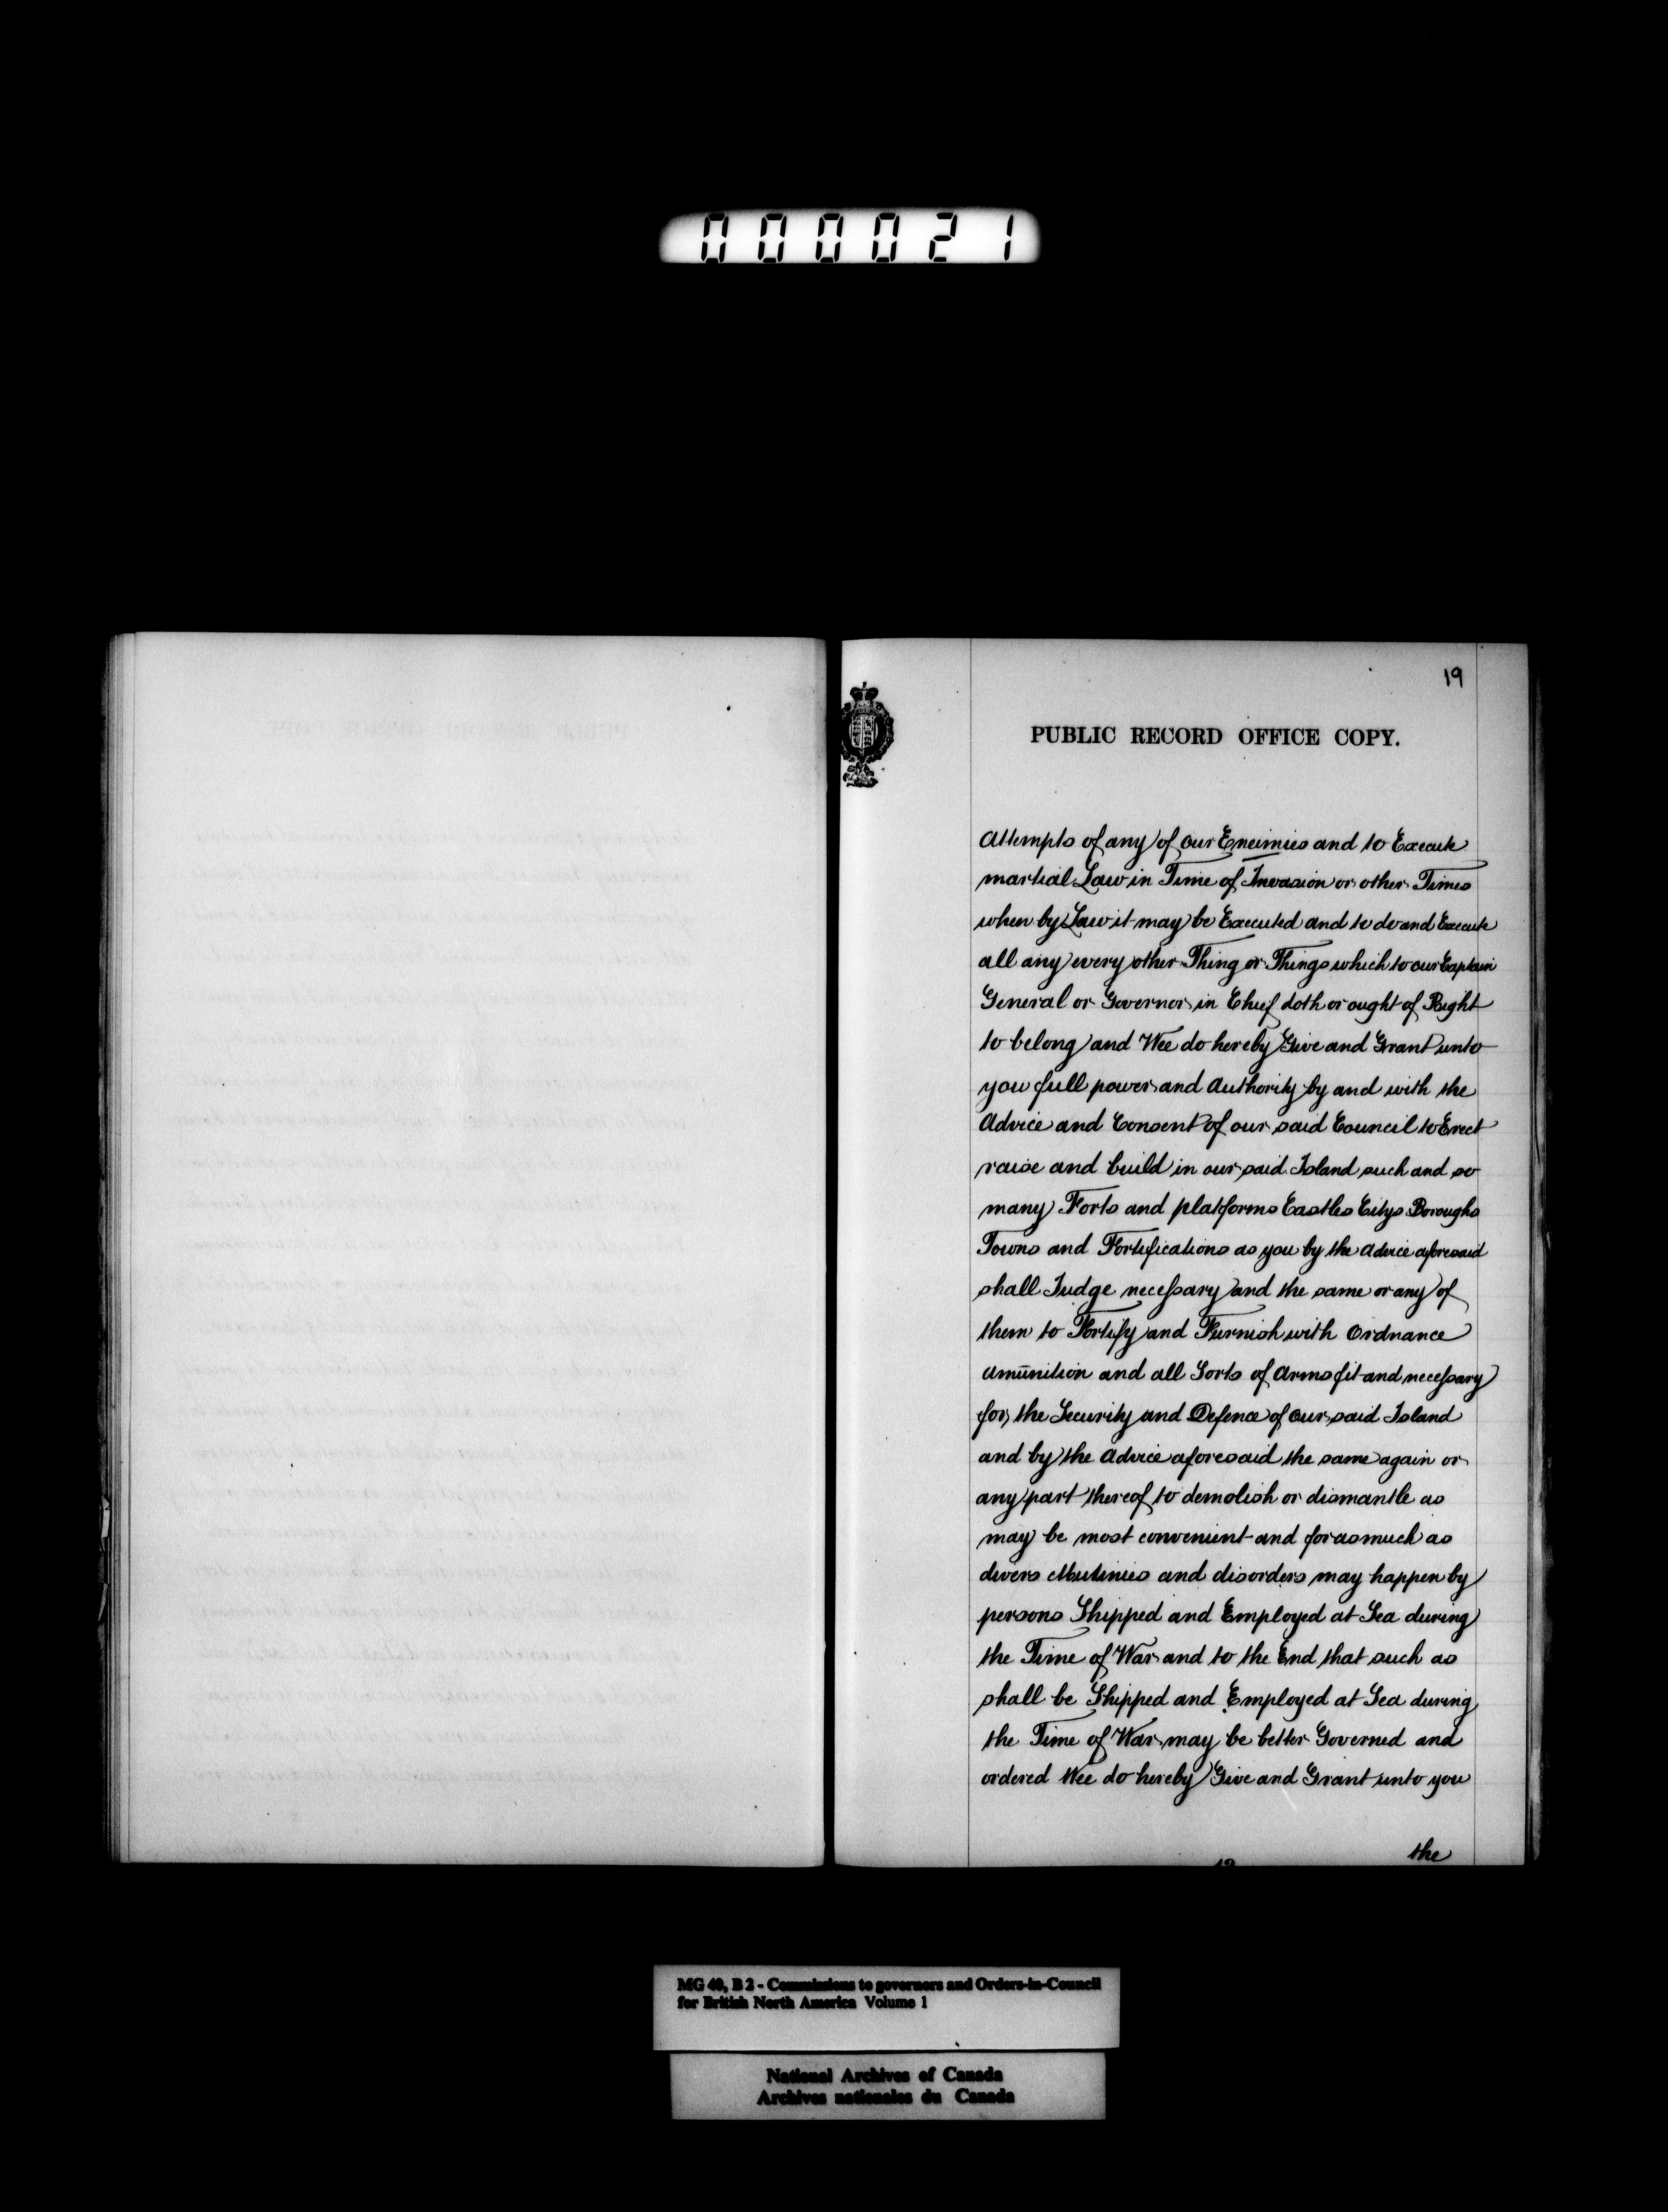 000021
19
PUBLIC RECORD OFFICE COPY.
Attempts of any of our Eneimies and to Execute
martial Law in Time of Invasion or other Times
when by Law it may be Executed and to do and Execute
all any every other Thing or Things which to our Captain
General or Governor in Chief doth or ought of Right
to belong and Wee do hereby Give and Grant unto
you full power and Authority by and with the
Advice and Consent of our said Council to Erect
raise and build in our said Island such and so
many Forts and platforms Castles Citys Boroughs
Towns and Fortifications as you by the Advice aforesaid
shall Judge necessary and the same or any of
them to Fortify and Furnish with Ordnance
Amūnition and all Sorts of Arms fit and necessary
for the Security and Defence of our said Island
and by the Advice aforesaid the same again or
any part thereof to demolish or dismantle as
may be most convenient and forasmuch as
divers Mutinies and disorders may happen by
persons Shipped and Employed at Sea during
the Time of War and to the End that such as
shall be Shipped and Employed at Sea during
the Time of War may be better Governed and
ordered Wee do hereby Give and Grant unto you
the
MG 40, B 2 - Commissions to governors and Orders-in-Council
for British North America Volume 1
National Archives of Canada
Archives nationales du Canada